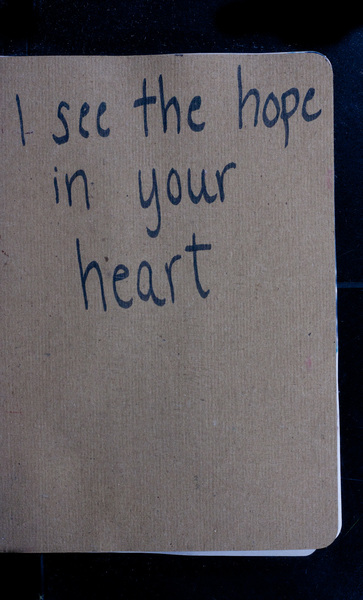 I see the hope
in your
heart